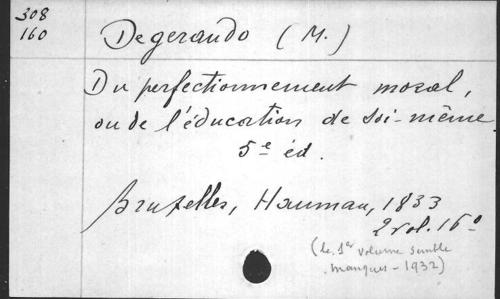 308
160
Degerando (M.)
Du perfectionnement moral,
ou de l'éducation de soi-même
5e éd.
Bruxelles, Hauman, 1833
2 vol. 16°
(le 1er volume semble
manquer - 1932)